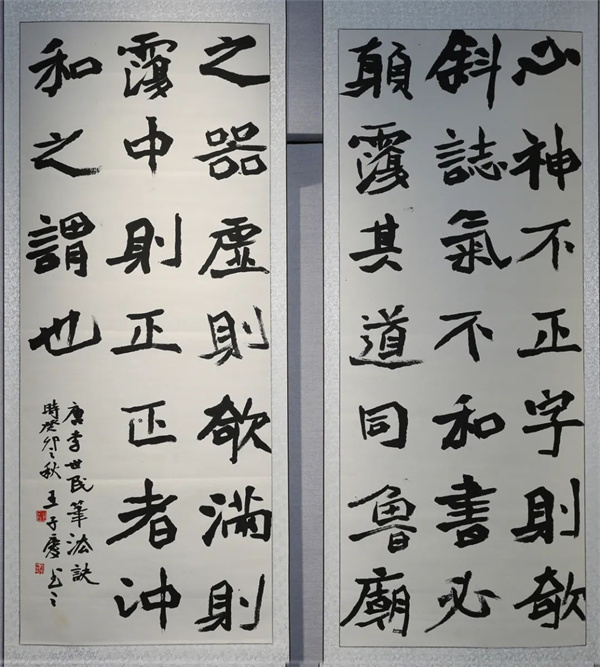 心神不正字則欹
斜誌氣不和書必
顛覆其道同魯廟
之器虛則欹滿則
覆中則正正者沖
和之謂也
唐李世民筆法訣
時癸卯之秋 王子慶书之